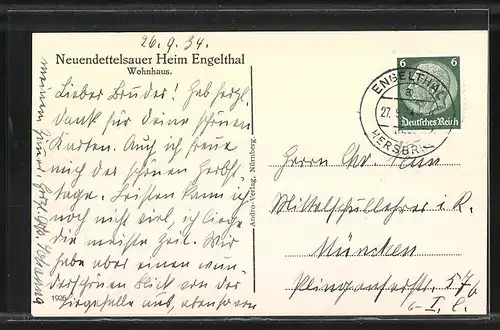 26.9.34.
Neuendettelsauer Heim Engelthal
Wohnhaus.
Lieber Bruder! Hab herzl.
Dank für deine schönen
Karten. Auch ich freue
mich der schönen Herbst-
tage. Leisten kann ich
noch nicht viel, ich liege
die meiste Zeit. Wir
habe aber einen wun-
derschönen Blick von der
Liegehalle aus, ebenso von
meinem Zimmer. Herzl.
1926
Andro-Verlag, Nürnberg.
6 6
Deutsches Reich
ENGELTHAL
27.9.
HERSBR
Herrn Chr.
Mittelschullehrer i. R.
München
Plinganserstr. 576